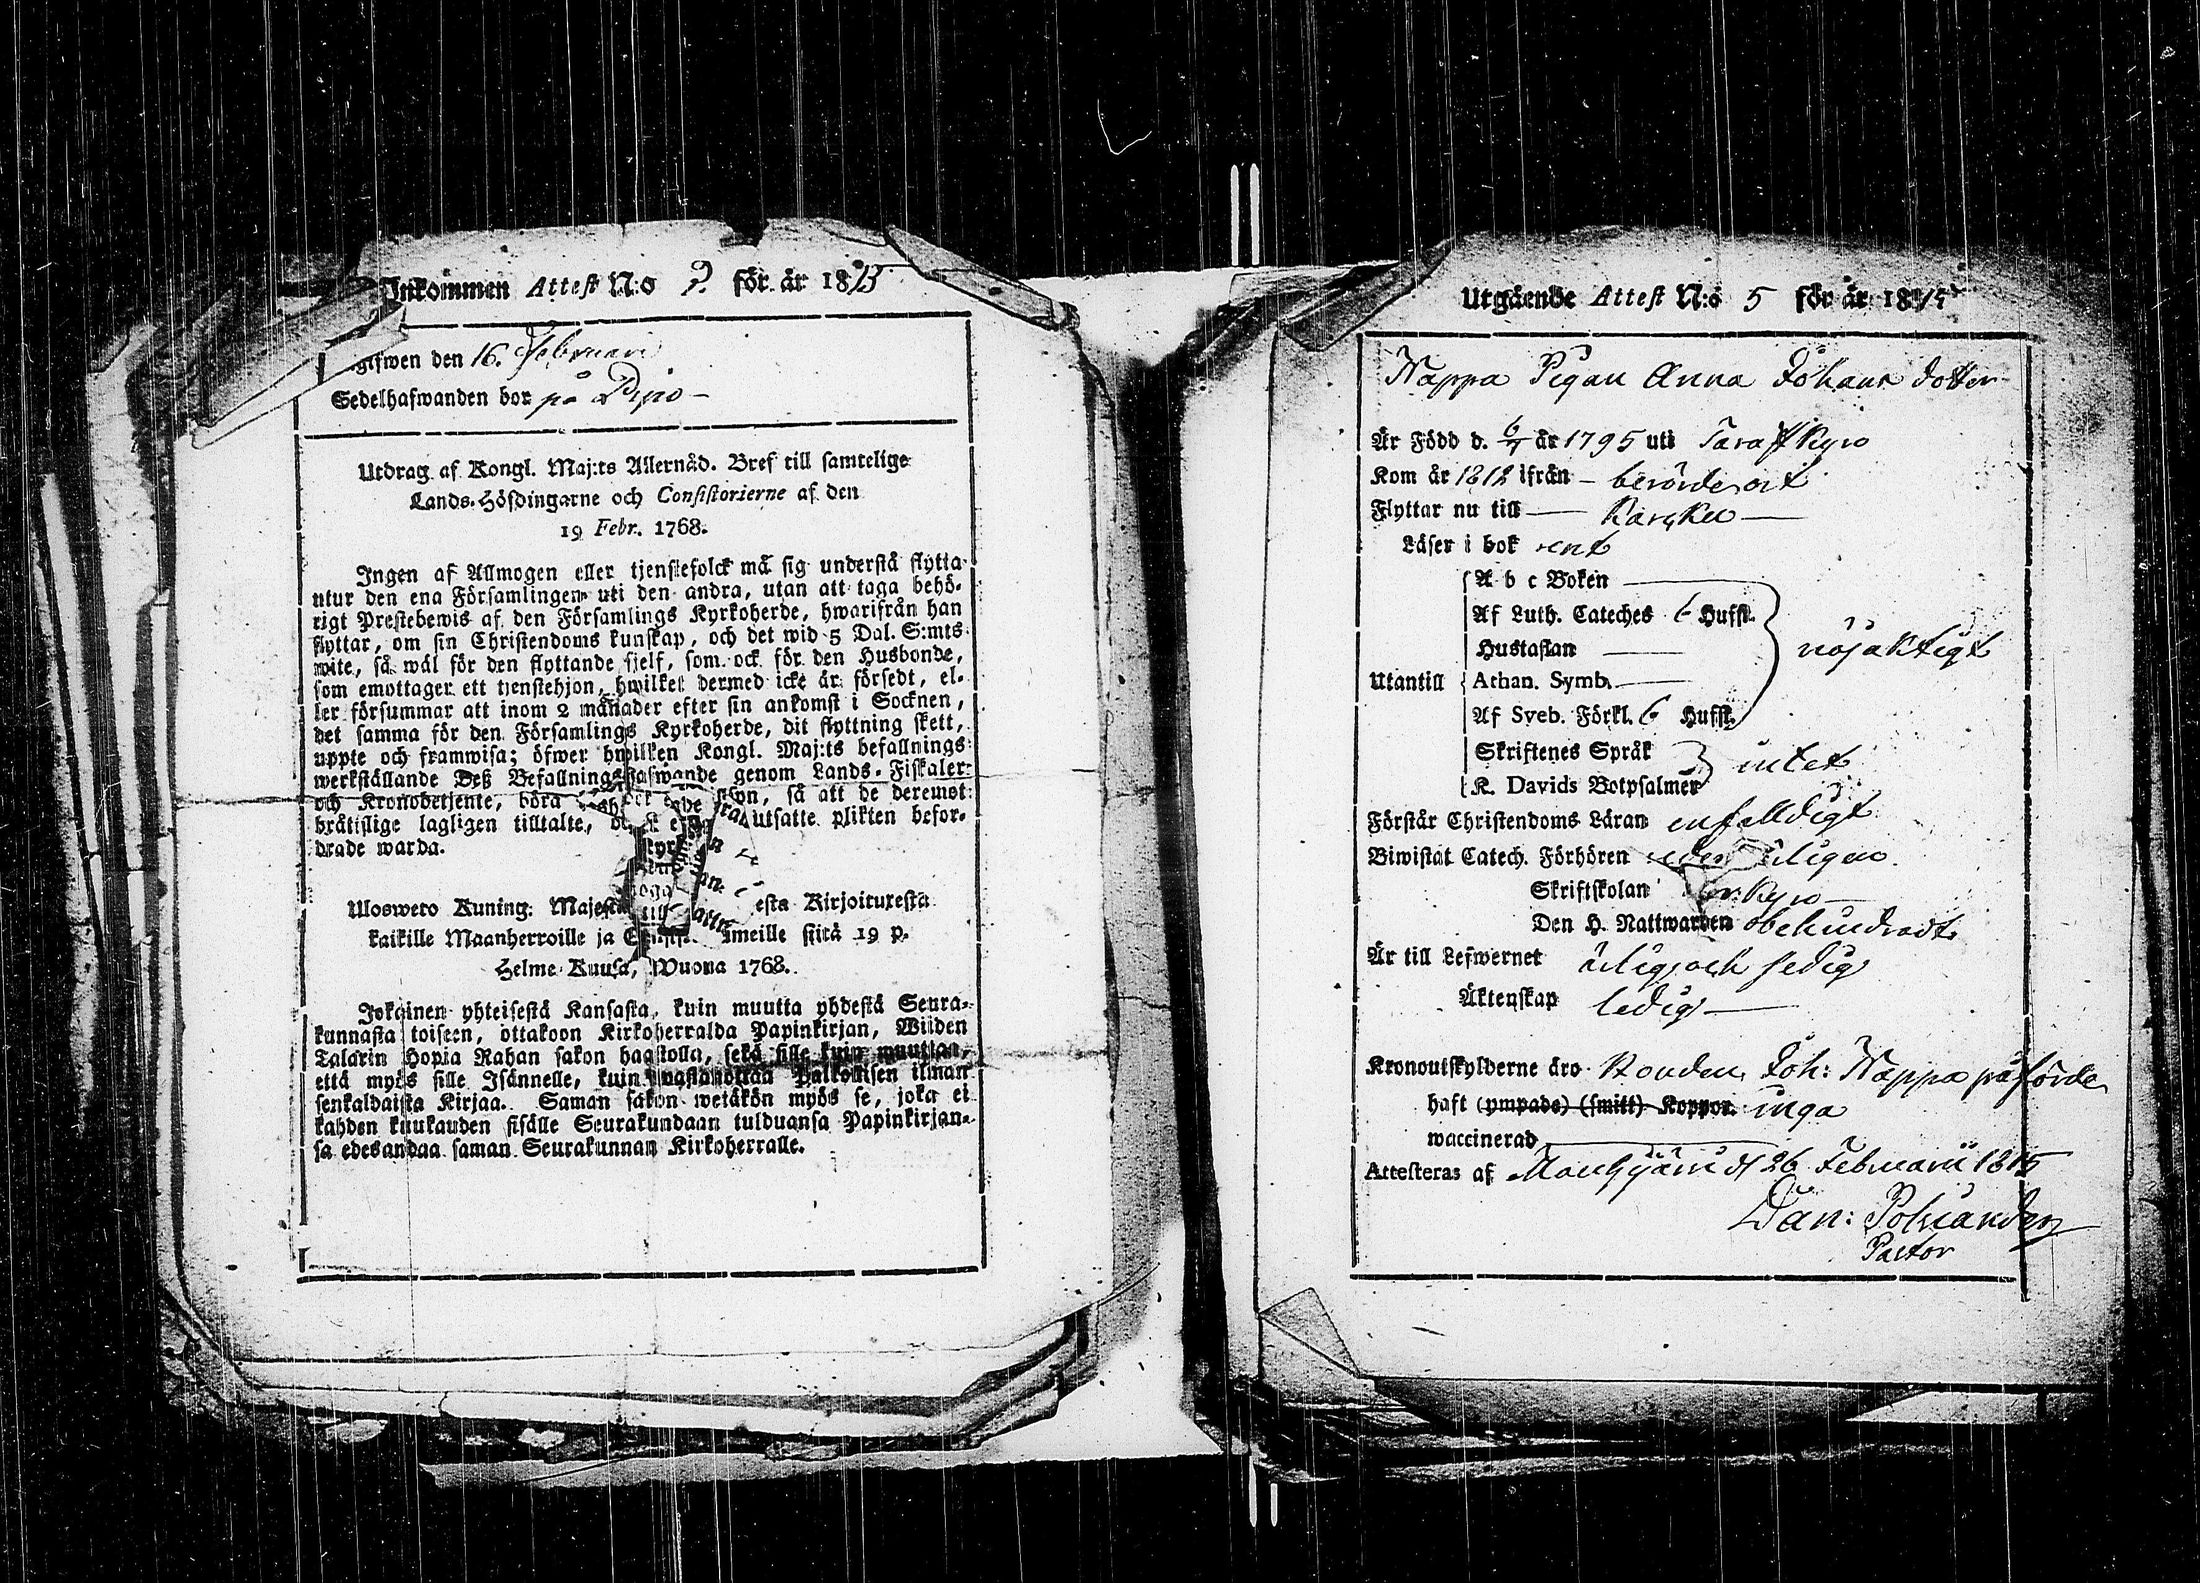 Inkommen Attest N:o 9. för år 1813
gifwen den 16. Februari
Sedelhafwanden bor på
Utdrag af Kongl. Maj:ts Allernåd. Bref till samtelige
Lands-Höfdingarne och Consistorierne af den
19 Febr. 1768.
Ingen af Allmogen eller tjenstefolck må sig understå flytta
utur den ena Församlingen uti den andra, utan att taga behö-
rigt Prestebewis af den Församlings Kyrkoherde, hwarifrån han
flyttar, om sin Christendoms kunskap, och det wid 5 Dal. S:mts
wite, så wäl för den flyttande sjelf, som ock för den Husbonde,
som emottager ett tjenstehjon, hwilket dermed icke är försedt, el-
ler försummar att inom 2 månader efter sin ankomst i Socknen,
det samma för den Församlings Kyrkoherde, dit flyttning skett,
uppte och framwisa; öfwer hwilken Kongl. Maj:ts befallnings
werkställande Deß Befallningshafwande genom Lands-Fiskaler
och Kronobetjente, böra så att de deremot
bråtslige lagligen tilltalte, utsatte plikten befor-
drade warda.
Uloswето Kuning: esta Kirjoituxesta
kaikille Maanherroille ja stitä 19 p.
Helme-Kuusa, Wuona 1768.
Jokainen yhteisestä Kansasta, kuin muutta yhdestä Seura-
kunnasta toiseen, ottakoon Kirkoherralda Papinkirjan, Wiiden
Talarin Hopia Rahan sakon haastolla, sekä sille kuin muuttaa,
että myös sille Isännelle, kuin wastanottaa Palkollisen ilman
senkaldaista Kirjaa. Saman sakon wetäkön myös se, joka ei
kahden kuukauden sisälle Seurakundaan tulduansa Papinkirjan-
sa edesandaa saman Seurakunnan Kirkoherralle.
Utgående Attest N:o 5 för år 1815
Nappa Pigan Anna Johans dotter
Är Född d. 6/7 år 1795 uti Tavastkyro
Kom år 1812 ifrån berörde ort
Flyttar nu till Karcku
Läser i bok rent
A b c Boken
Af Luth. Cateches 6 Hufst.
Hustaflan
nöjaktigt
Utantill Athan. Symb.
Af Sveb. Förkl. 6 Hufst.
Skriftenes Språk
intet
K. Davids Botpsalmer
Förstår Christendoms Läran enfalldigt
Biwistat Catech. Förhören
Skriftskolan
Den H. Nattwarden obehindradt
Är till Lefwernet ärlig och sedig
Äktenskap ledig
Kronoutskylderne äro Bonden Joh: Nappa påförde
haft (ympade) (smitt) Koppor. inga
waccinerad
Attesteras af Mouhijärvi d 26 Februarii 1815
Dan: Polviander
Pastor